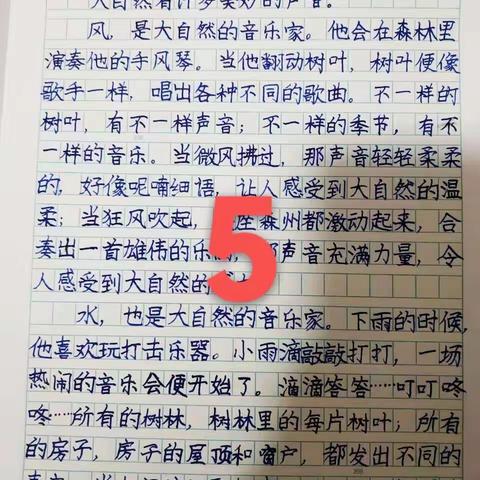 大自然有许多美妙的声音。
风，是大自然的音乐家。他会在森林里
演奏他的手风琴。当他翻动树叶，树叶便像
歌手一样，唱出各种不同的歌曲。不一样的
树叶，有不一样声音；不一样的季节，有不
一样的音乐。当微风拂过，那声音轻轻柔柔
的，好像呢喃细语，让人感受到大自然的温
柔；当狂风吹起，座森州都激动起来，合
奏出一首雄伟的乐声音充满力量，令
人感受到大自然的
5
水，也是大自然的音乐家。下雨的时候，
他喜欢玩打击乐器。小雨滴敲敲打打，一场
热闹的音乐会便开始了。滴滴答答……叮叮咚
咚……所有的树林，树林里的每片树叶；所有
的房子，房子的屋顶和窗户，都发出不同的